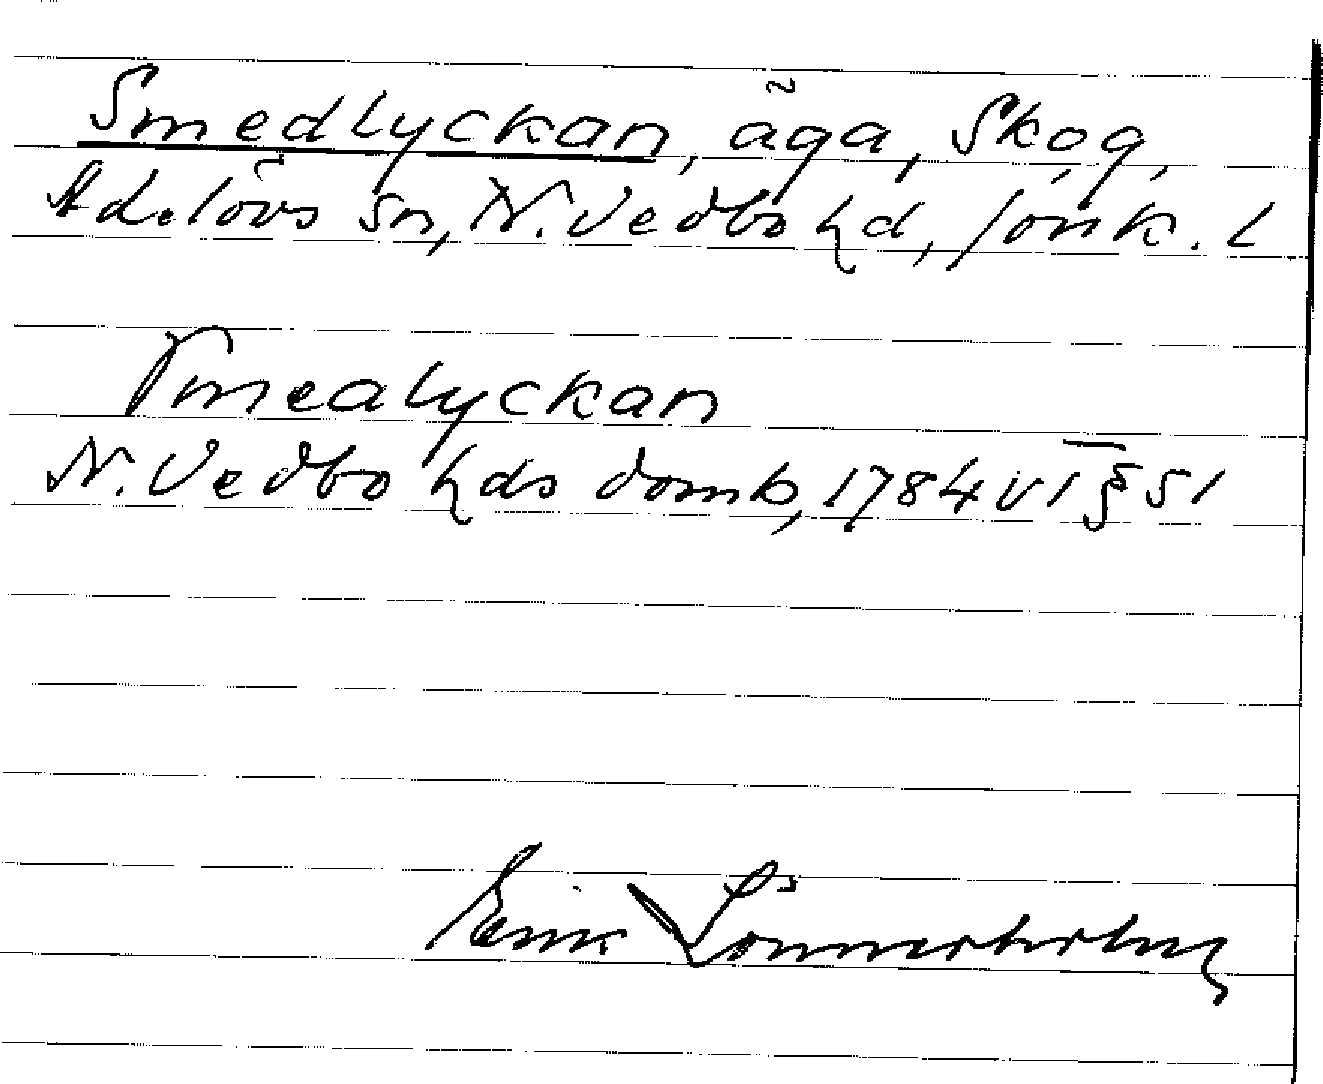 Smedlyckan, äga, skog,
Adelövs sn, N. Vedbo hd, Jönk. L
Smedlyckan
N. Vedbo hds domb, 1784 VI § 51
Einar Lönnerholm